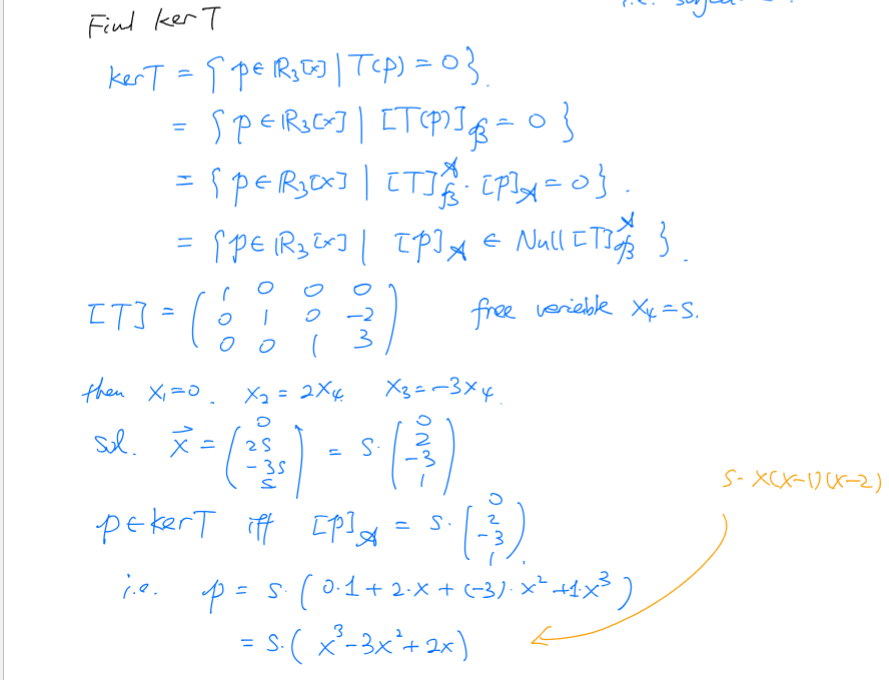 i.e. surjective.
Find ker T
ker T = { p ∈ ℝ₃[x] | T(p) = 0 }.
= { p ∈ ℝ₃[x] | [T(p)]_𝓑 = 0 }
= { p ∈ ℝ₃[x] | [T]^𝓐_𝓑 · [p]_𝓐 = 0 }.
= { p ∈ ℝ₃[x] | [p]_𝓐 ∈ Null [T]^𝓐_𝓑 }.
[T] = ( 1 0 0 0
0 1 0 -2
0 0 1 3 ) free variable x₄ = s.
then x₁=0. x₂ = 2x₄ x₃ = -3x₄.
sol. x⃗ = ( 0 2s -3s s ) = s. ( 0 2 -3 1 )
s. x(x-1)(x-2)
p ∈ ker T iff [p]_𝓐 = s. ( 0 2 -3 1 ).
i.e. p = s. ( 0·1 + 2·x + (-3)·x² + 1·x³ )
= s. ( x³ - 3x² + 2x )